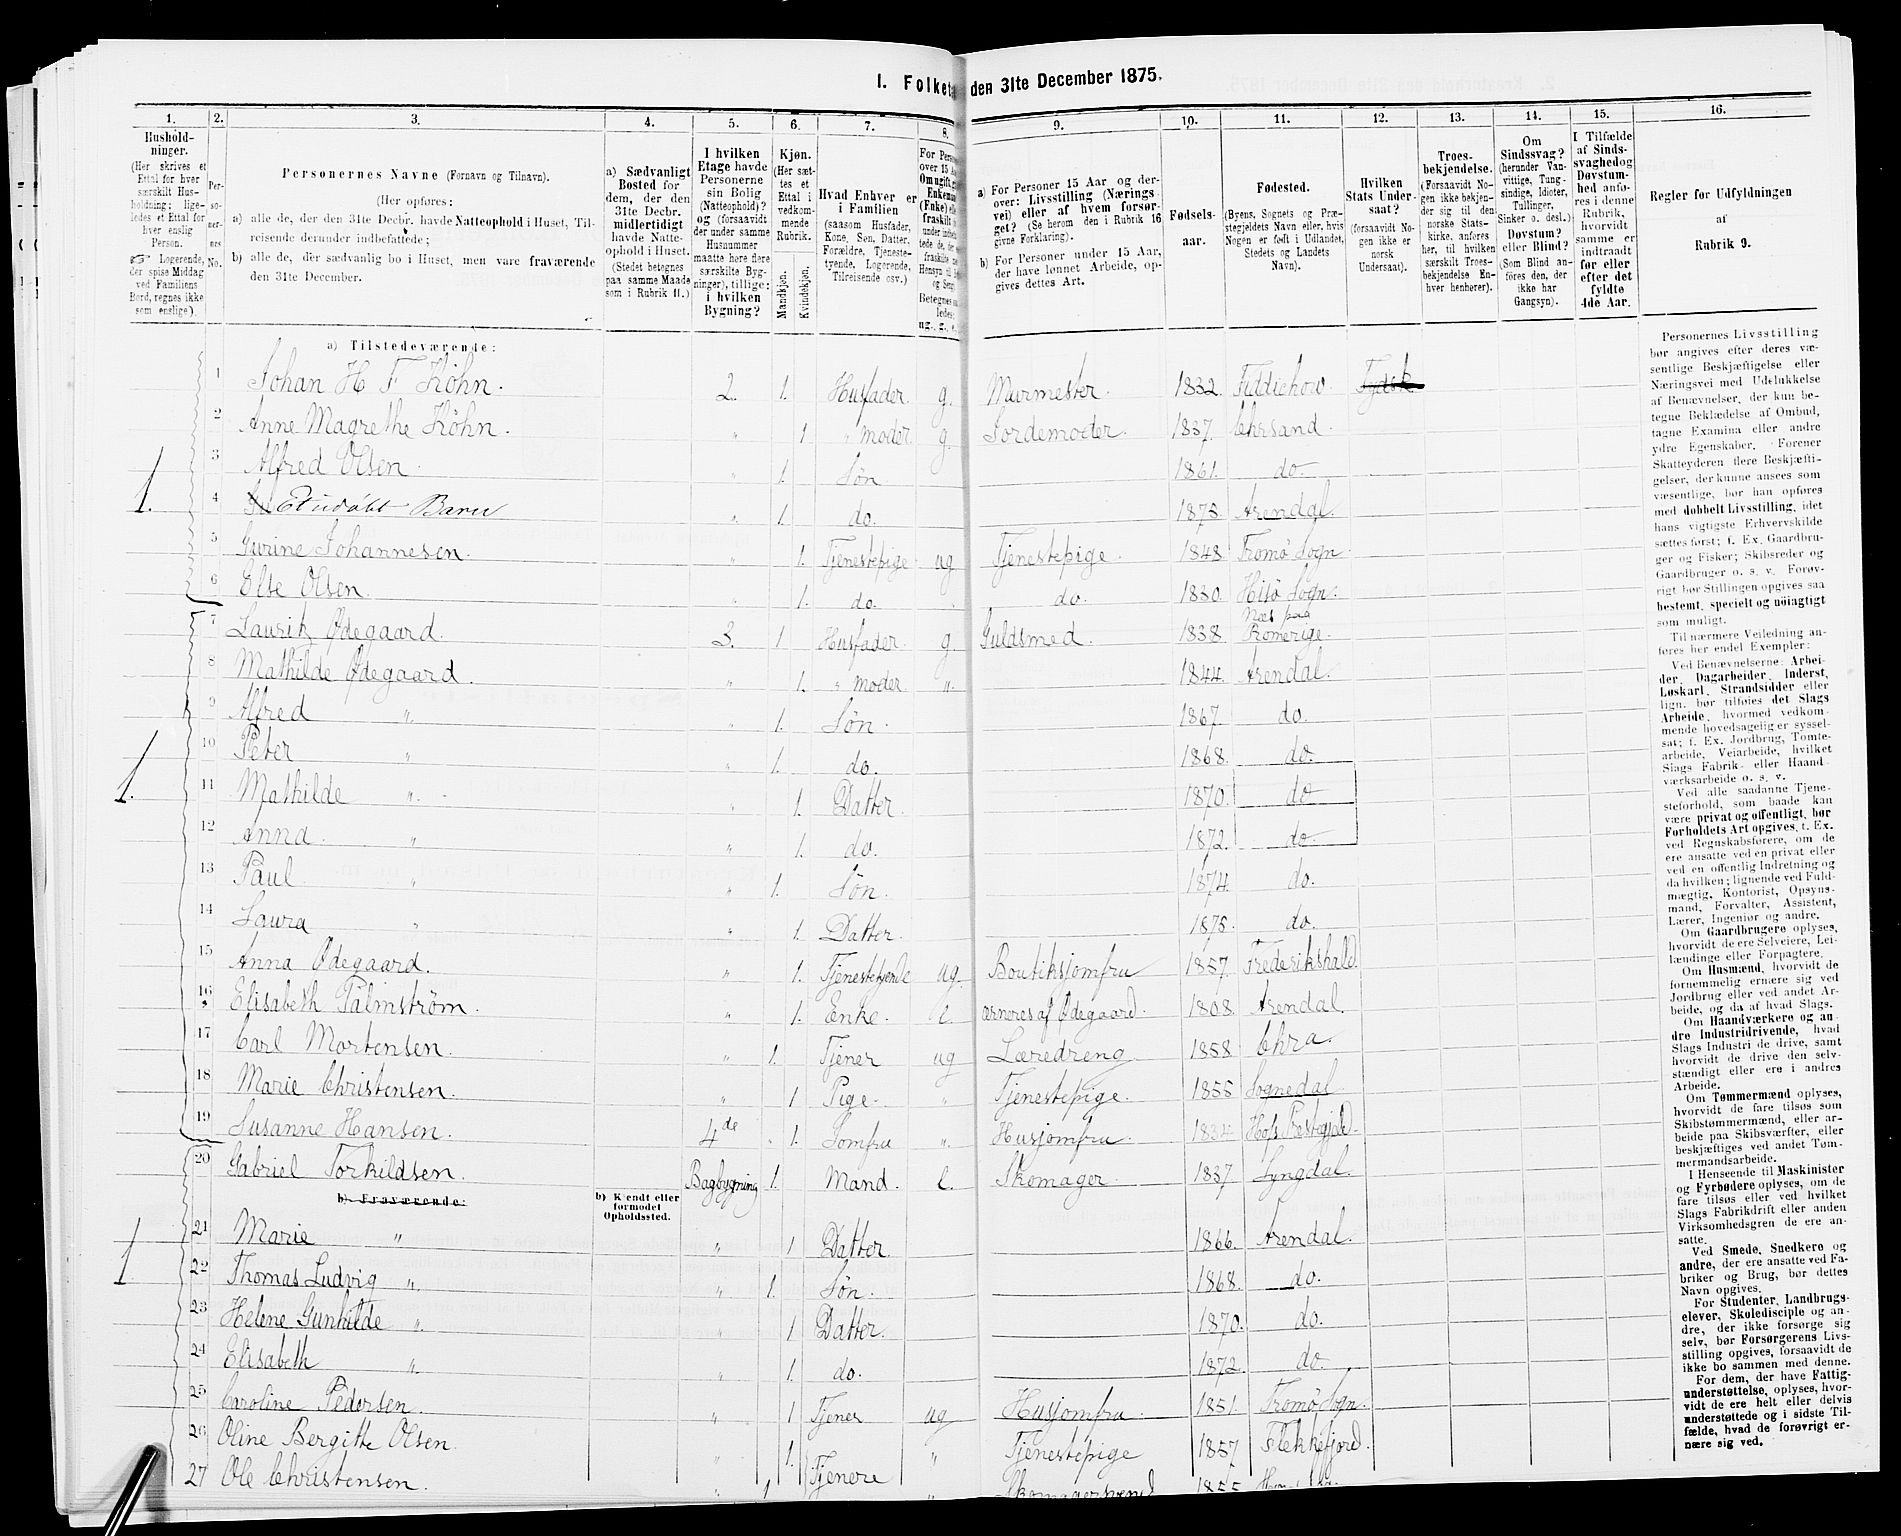 1. Folketæ den 31te December 1875.
1. 2. 3. 4. 5. 6. 7. 8. 9. 10. 11. 12. 13. 14. 15. 16.
Hushold-
ninger.
(Her skrives et
Ettal for hver
særskilt Hus-
holdning; lige-
ledes et Ettal for
hver enslig
Person.
☞ Logerende,
der spise Middag
ved Familiens
Bord, regnes ikke
som enslige).
Per-
so-
ner-
nes
No.
Personernes Navne (Fornavn og Tilnavn).
(Her opføres:
a) alle de, der den 31te Decbr. havde Natteophold i Huset, Til-
reisende derunder indbefattede;
b) alle de, der sædvanlig bo i Huset, men vare fraværende
den 31te December.
a) Sædvanligt
Bosted for
dem, der den
31te Decbr.
midlertidigt
havde Natte-
ophold i Huset.
(Stedet betegnes
paa samme Maade
som i Rubrik 11.)
I hvilken
Etage havde
Personerne
sin Bolig
(Natteophold)?
og (forsaavidt
der under samme
Husnummer
maatte høre flere
særskilte Byg-
ninger), tillige:
i hvilken
Bygning?
Kjøn.
(Her sæt-
tes et
Ettal i
vedkom-
mende
Rubrik.
Mandkjøn.
Kvindekjøn.
Hvad Enhver er
i Familien
(saasom Husfader,
Kone, Søn, Datter,
Forældre, Tjeneste-
tyende, Logerende,
Tilreisende osv.)
For Person
over 15 A
Omugift, g
Enkem
(Enke) el
fraskilt
a) For Personer 15 Aar og der-
over: Livsstilling (Nærings-
vei) eller af hvem forsør-
get? (Se herom den i Rubrik 16
givne Forklaring).
b) For Personer under 15 Aar,
der have lønnet Arbeide, op-
gives dettes Art.
Fødsels-
aar.
Fødested.
(Byens, Sognets og Præ-
stegjeldets Navn eller, hvis
Nogen er født i Udlandet,
Stedets og Landets
Navn).
Hvilken
Stats Under-
saat?
(forsaavidt No-
gen ikke er
norsk
Undersaat).
Troes-
bekjendelse.
(Forsaavidt No-
gen ikke bekjen-
der sig til den
norske Stats-
kirke, anføres
her, til hvilken
særskilt Troes-
bekjendelse En-
hver henhører).
Om
Sindssvag?
(herunder Van-
vittige, Tung-
sindige, Idioter,
Tullinger,
Sinker o. desl.)
Døvstum?
eller Blind?
(Som Blind an-
føres den, der
ikke har
Gangsyn).
I Tilfælde
af Sinds-
svaghed og
Døvstum-
hed anfø-
res i denne
Rubrik,
hvorvidt
samme er
indtraadt
før eller
efter det
fyldte
4de Aar.
Regler for Udfyldningen
af
Rubrik 9.
a) Tilstedeværende:
1 Johan H F Köhn. 2. 1. Husfader. g. Murmester. 1832. Fiddichow Tydsk
2 Anne Magrethe Köhn. " 1 " moder g. Jordemoder. 1837. Chrsand.
3 Alfred Olsen. " 1. Søn 1861. do
1. 4 Et udøbt Barn " 1. do. 1875. Arendal.
5 Gurine Johannesen. " 1. Tjenestepige ug Tjenestepige. 1848. Tromø Sogn
6 Else Olsen. " 1. do. " do. 1830. Hisø Sogn.
7 Lauritz Ødegaard. 3. 1 Husfader. g. Guldsmed. 1838. Næs paa Romerige.
8 Mathilde Ødegaard. " 1. " moder ". 1844. Arendal.
9 Alfred " " 1. Søn. 1867. do.
10 Peter " " 1. do. 1868. do.
1. 11 Mathilde " " 1. Datter 1870. do
12 Anna. " " 1. do. 1872. do
13 Paul " " 1. Søn. 1874. do.
14 Laura " " 1. Datter. 1875. do.
15 Anna Ødegaard. " 1. Tjenestetyende ug. Boutiksjomfru 1857. Frederikshald
16 Elisabeth Palmström. " 1. Enke. e. ærneres af Ødegaard. 1808. Arendal.
17 Carl Mortensen. " 1. Tjener ug Læredreng. 1858 Chra.
18 Marie Christensen. " 1 Pige. " Tjenestepige. 1855 Sognedal
19 Susanne Hansen. 4de 1. Jomfru ". Husjomfru. 1834. Hofs Prestegjeld
20 Gabriel Torkildsen. Bagbygning 1. Mand. e. Skomager. 1837 Lyngdal.
b) Fraværende:
b) Kjendt eller
formodet
Opholdssted.
21 Marie " " 1 Datter. 1866. Arendal.
1 22 Thomas Ludvig " " 1. Søn. 1868. do.
23 Helene Gunhilde " " 1 Datter. 1870. do.
24 Elisabeth " " 1. do. 1872. do.
25 Caroline Pedersen. " 1 Tjener ug Husjomfru. 1851. Tromø Sogn.
26 Oline Bergitte Olsen. " 1. " Tjenestepige 1857 Flekkefjord.
27 Ole Christensen. " 1 Tjenere " Skomagersvend 1855
Personernes Livsstilling
bør angives efter deres væ-
sentlige Beskjæftigelse eller
Næringsvei med Udelukkelse
af Benævnelser, der kun be-
tegne Beklædelse af Ombud,
tagne Examina eller andre
ydre Egenskaber. Forener
Skatteyderen flere Beskjæfti-
gelser, der kunne ansees som
væsentlige, bør han opføres
med dobbelt Livsstilling, idet
hans vigtigste Erhvervskilde
sættes først; f. Ex. Gaardbru-
ger og Fisker; Skibsreder og
Gaardbruger o. s. v. Forøv-
rigt bør Stillingen opgives saa
bestemt, specielt og nøiagtigt
som muligt.
Til nærmere Veiledning an-
føres her endel Exempler:
Ved Benævnelserne: Arbei-
der, Dagarbeider, Inderst,
Løskarl, Strandsidder eller
lign. bør tilføies det Slags
Arbeide, hvormed vedkom-
mende hovedsagelig er syssel-
sat; f. Ex. Jordbrug, Tomte-
arbeide, Veiarbeide, hvilket
Slags Fabrik- eller Haand-
værksarbeide o. s. v.
Ved alle saadanne Tjene-
steforhold, som baade kan
være privat og offentligt, bør
Forholdets Art opgives, t. Ex.
ved Regnskabsførere, om de
ere ansatte ved en privat eller
ved en offentlig Indretning og
da hvilken; lignende ved Fuld-
mægtig, Kontorist, Opsyns-
mand, Forvalter, Assistent,
Lærer, Ingeniør og andre.
Om Gaardbrugere oplyses,
hvorvidt de ere Selveiere, Lei-
lændinge eller Forpagtere.
Om Husmænd, hvorvidt de
fornemmelig ernære sig ved
Jordbrug eller ved andet Ar-
beide, og da af hvad Slags.
Om Haandværkere og an-
dre Industridrivende, hvad
Slags Industri de drive, samt
hvorvidt de drive den selv-
stændigt eller ere i andres
Arbeide.
Om Tømmermænd oplyses,
hvorvidt de fare tilsøs som
Skibstømmermænd, eller ar-
beide paa Skibsværfter, eller
beskjæftiges ved andet Tøm-
mermandsarbeide.
I Henseende til Maskinister
og Fyrbødere oplyses, om de
fare tilsøs eller ved hvilket
Slags Fabrikdrift eller anden
Virksomhedsgren de ere an-
satte.
Ved Smede, Snedkere og
andre, der ere ansatte ved Fa-
briker og Brug, bør dettes
Navn opgives.
For Studenter, Landbrugs-
elever, Skoledisciple og an-
dre, der ikke forsørge sig
selv, bør Forsørgerens Livs-
stilling opgives, forsaavidt de
ikke bo sammen med denne.
For dem, der have Fattig-
understøttelse, oplyses, hvor-
vidt de ere helt eller delvis
understøttede og i sidste Til-
fælde, hvad de forøvrigt er-
nære sig ved.